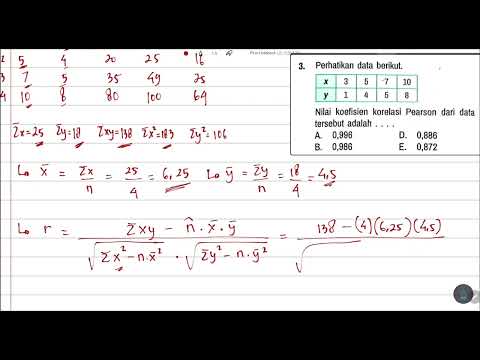 2 5 4 20 25 16
3 7 5 35 49 25
4 10 8 80 100 64
Σx=25 Σy=18 Σxy=138 Σx²=183 Σy²=106
x̄ = Σx/n = 25/4 = 6,25 ȳ = Σy/n = 18/4 = 4,5
r = Σxy - n.x̄.ȳ / √Σx²-n.x̄² . √Σy²-n.ȳ² = 138-(4)(6,25)(4,5) / √
3. Perhatikan data berikut.
x 3 5 7 10
y 1 4 5 8
Nilai koefisien korelasi Pearson dari data
tersebut adalah . . . .
A. 0,996 D. 0,886
B. 0,986 E. 0,872